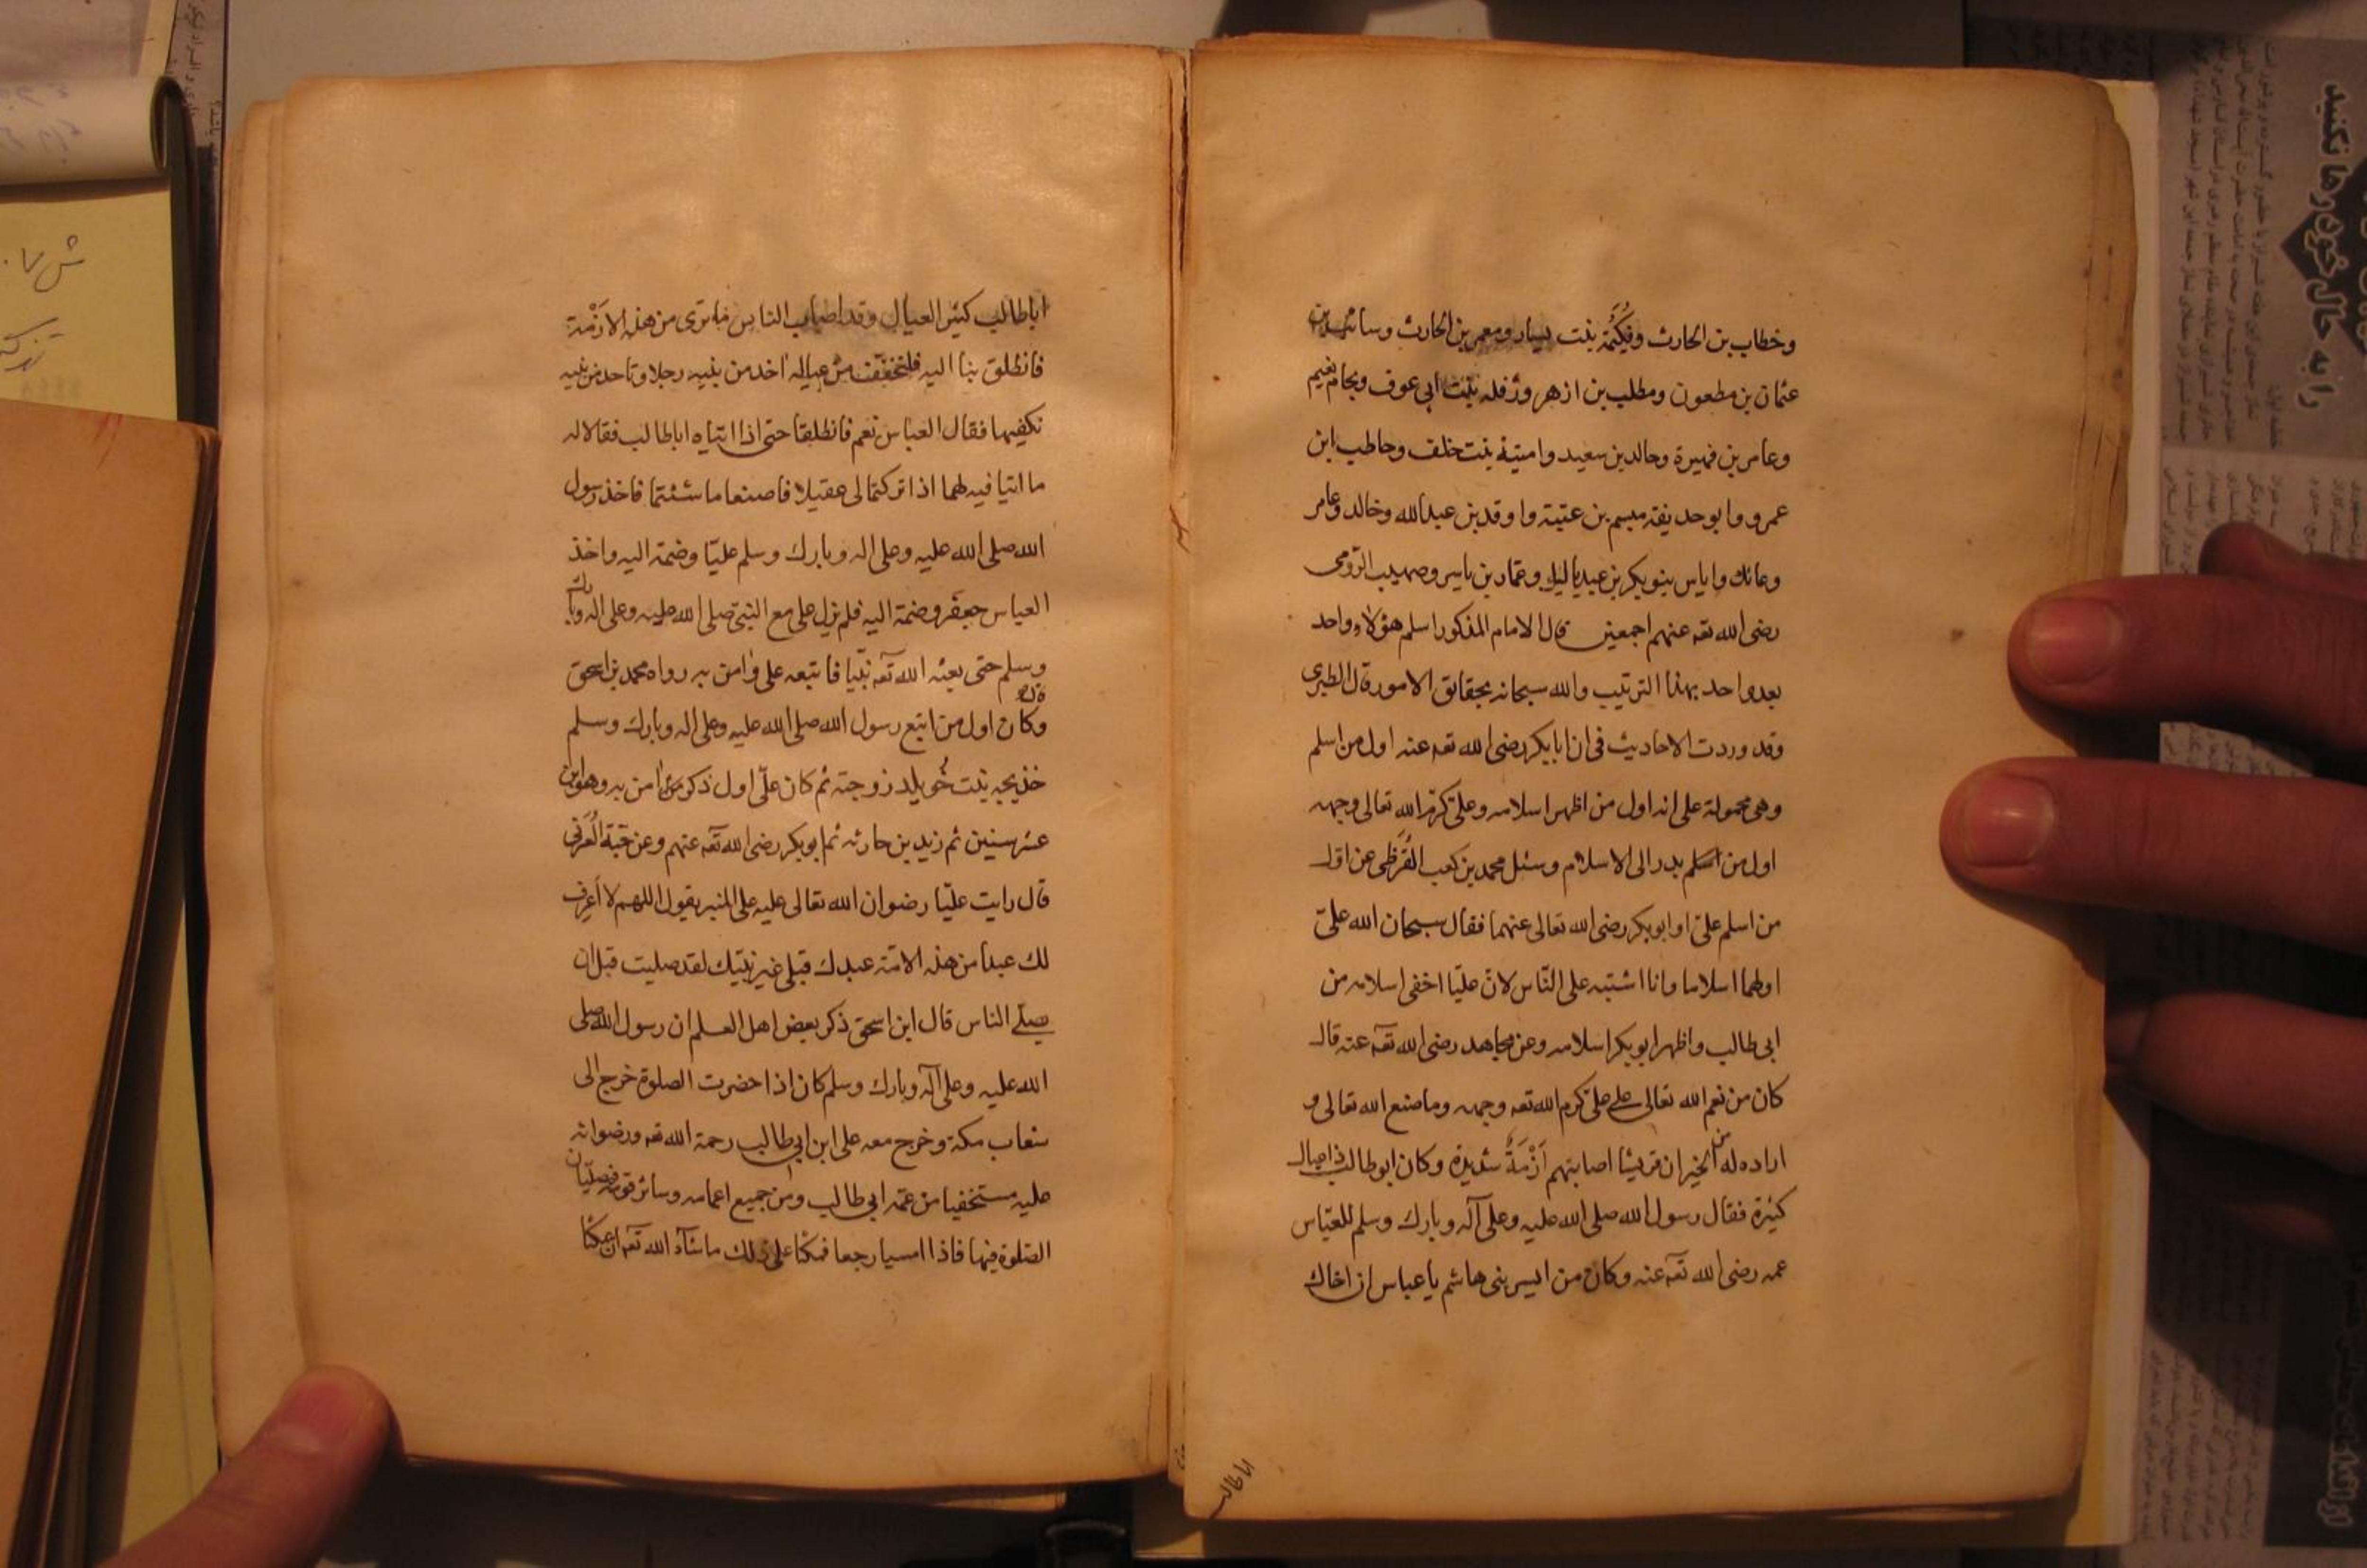 وخطاب بن الحارث وفكيهة بنت يسار ومعمر بن الحارث وسائب بن
عثمان بن مطعون ومطلب بن ازهر ورفله بنت ابى عوف ونحام نعيم
وعامر بن فهيرة وخالد بن سعيد وامينة بنت خلف وحاطب ابن
عمرو وابو حديفة ميسم بن عتيبة واوقد بن عبد الله وخالد وعامر
وعاتك واياس بنو بكر بن عبد ياليل وعمار بن ياسر وصهيب الرومى
رضى الله تعه عنهم اجمعين قال الامام المذكور اسلم هؤلاء واحد
بعد واحد بهذا الترتيب والله سبحانه بحقايق الامور قال الطبرى
وقد وردت الاحاديث فى ان ابا بكر رضى الله تعه عنه اول من اسلم
وهى محمولة على انه اول من اظهر اسلامه وعلى كرم الله تعالى وجهه
اول من اسلم بدر الى الاسلام وسئل محمد بن كعب القُرَظى عن اول
من اسلم على او ابو بكر رضى الله تعالى عنهما فقال سبحان الله علىّ
اولهما اسلاما وانا اشتبه على النّاس لانّ عليّا اخفى اسلامه من
ابى طالب واظهر ابو بكر اسلامه وعن مجاهد رضى الله تعه عنه قال
كان من نعم الله تعالى على على كرم الله تعه وجهه وما صنع الله تعالى و
اراده له من الخير ان قريشا اصابتهم اَزْمَةٌ شديدة وكان ابو طالب ذا عيال
كثيرة فقال رسول الله صلى الله عليه وعلى آله وبارك وسلم للعبّاس
عمه رضى الله تعه عنه وكان من ايسر بنى هاشم يا عباس ان اخاك
ابا طالب
ابا طالب كثير العيال وقد اصاب الناس ما ترى من هذه الازْمة
فانطلق بنا اليه فلنخفف من عياله اخد من بنيه رجلا وتاخد من بنيه
نكفيهما فقال العباس نعم فانطلقا حتى اذا اتياه ابا طالب فقالا له
ما اتيا فيه لهما اذا تركتما لى عقيلا فاصنعا ما شئتما فاخذ رسول
الله صلى الله عليه وعلى اله وبارك وسلم عليّا وضمة اليه واخذ
العباس جعفر وضمة اليه فلم يزل على مع النبىّ صلى الله عليه وعلى اله وبارك
وسلم حتى بعثه الله تعه نبّيا فاتبعه على وامن به رواه محمد بن اسحق
قال وكان اول من اتبع رسول الله صلى الله عليه وعلى اله وبارك وسلم
خذيجه بنت خُويلد زوجته ثم كان علّى اول ذكر من امن به وهو ابن
عشر سنين ثم زيد بن حارثه ثم ابو بكر رضى الله تعه عنهم وعن حَبّة العُرَنى
قال رايت عليّا رضوان الله تعالى عليه على المنبر يقول اللهم لا اَعرف
لك عبدا من هذه الامّة عبدك قبلى غير نبيّك لقد صليت قبل ان
يصلّے الناس قال ابن اسحق ذكر بعض اهل العلم ان رسول الله صلى
الله عليه وعلى آله وبارك وسلم كان اذا حضرت الصلوة خرج الى
شعاب مكة وخرج معه على ابن ابى طالب رحمة الله تعه ورضوانه
عليه مستخفيا من عمّه ابى طالب ومن جميع اعمامه وسائر قومه فيصليان
الصّلوة فيها فاذا امسيا رجعا فمكثا على ذلك ما شآء الله تعه ان يمكثا